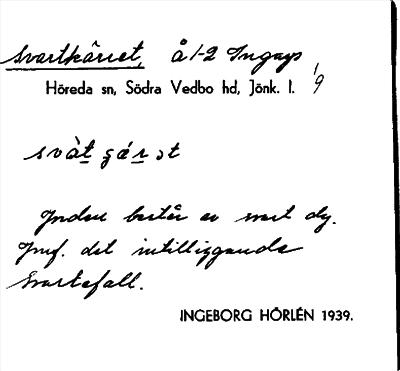 Svartkärret, å 1-2 Ingarp 1/9
Höreda sn, Södra Vedbo hd, Jönk. l.
svàt çǽrət
Jorden består av svart dy.
Jmf. det intilliggande
Svartefall.
INGEBORG HÖRLÉN 1939.